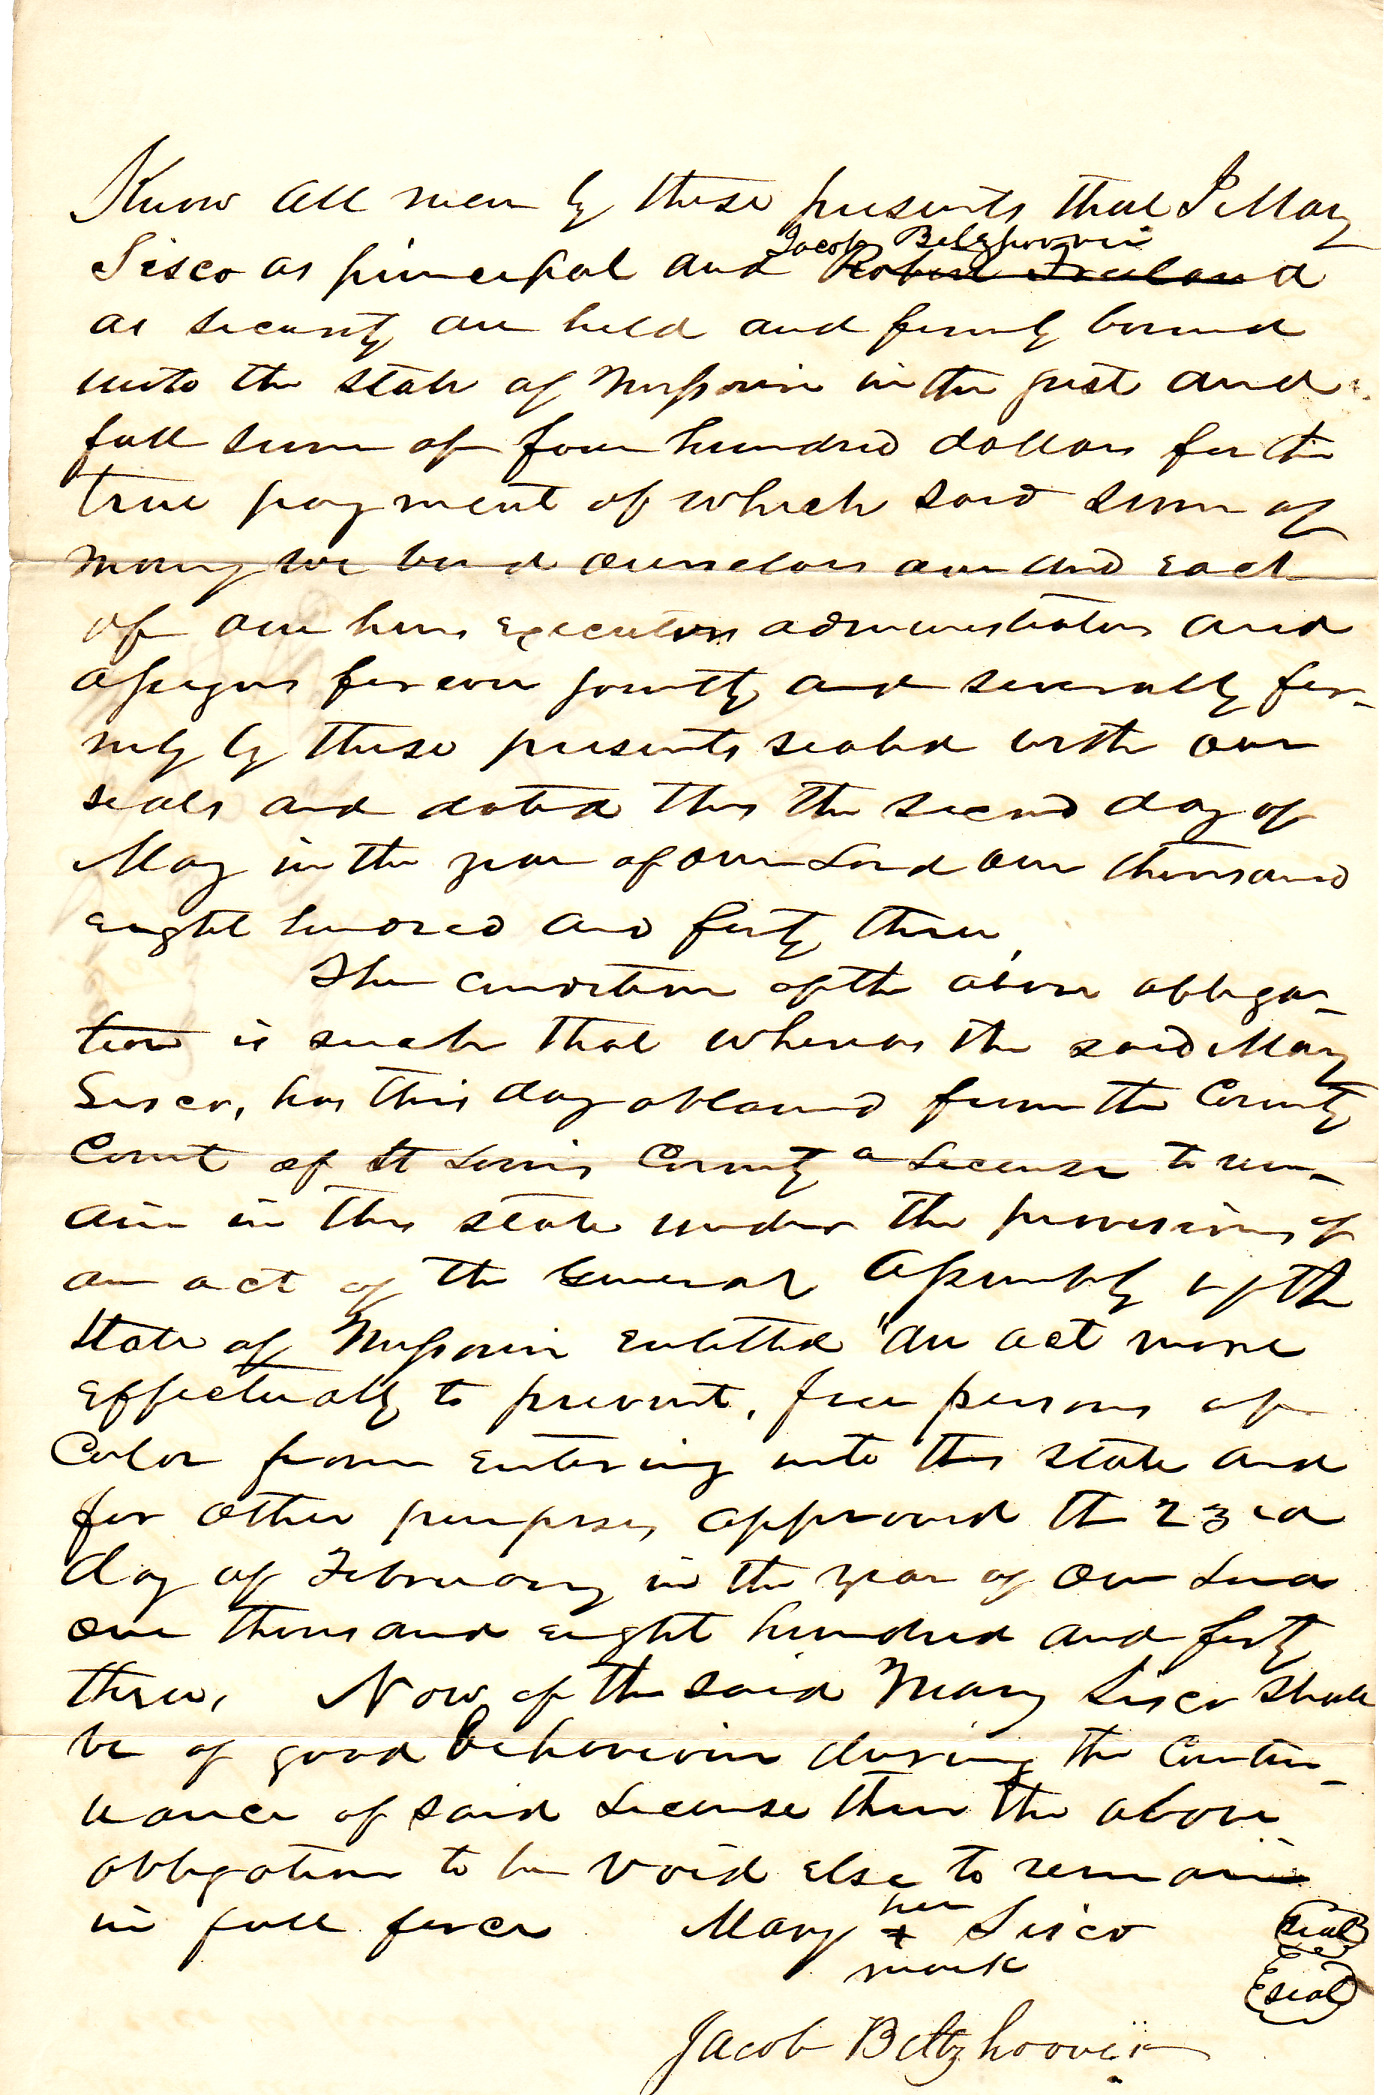 Know all men by these presents that I Mary
Jacob Beltzhoover
Sisco as principal and Robert Freeland
as security are held and firmly bound
unto the State of Missouri in the just and
full sum of four hundred dollars for the
true payment of which said sum of
money we bind ourselves our and each
of our heirs executors administrators and
assigns forever jointly and severally fir-
mly by these presents sealed with our
seals and dated this the second day of
May in the year of our Lord one thousand
eight hundred and forty three,
The condition of the above obliga-
tion is such that whereas the said Mary
Sisco, has this day obtained from the County
Court of St Louis County a License to rem-
ain in this state under the provisions of
an act of the General Assembly of the
State of Missouri entitled "An act more
effectually to prevent, free persons of
Color from entering into this state and
for other purposes, approved the 23rd
day of February in the year of our Lord
one thousand eight hundred and forty
three, Now if the said Mary Sisco shall
be of good behaviour during the contin-
uance of said License then the above
obligation to be void else to remain
in full force Mary her x mark Sisco seal
seal
Jacob Beltzhoover